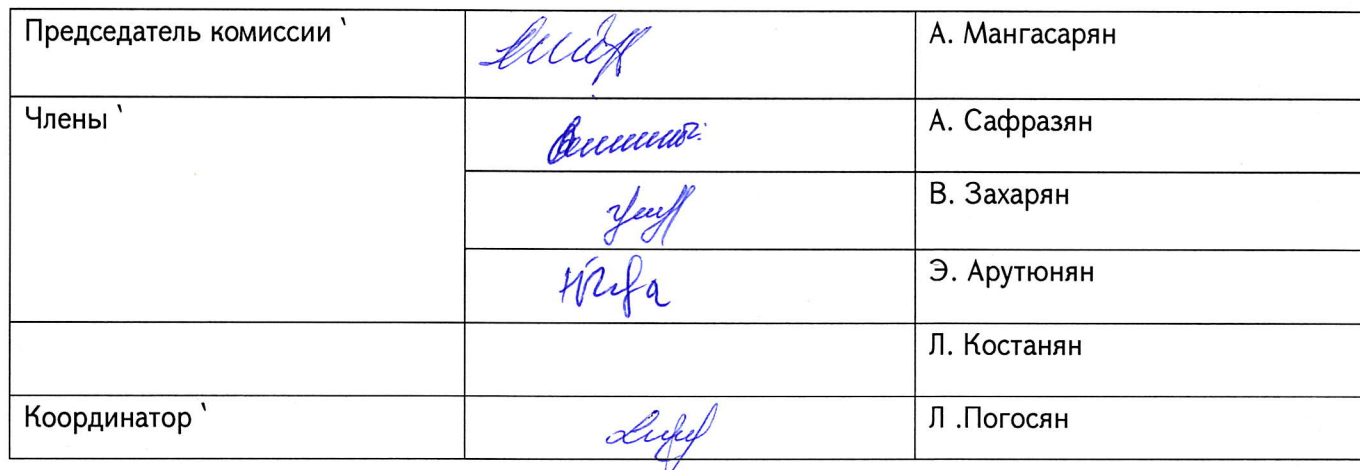 Председатель комиссии ՝
А. Мангасарян
Члены ՝
А. Сафразян
В. Захарян
Э. Арутюнян
Л. Костанян
Координатор ՝
Л .Погосян